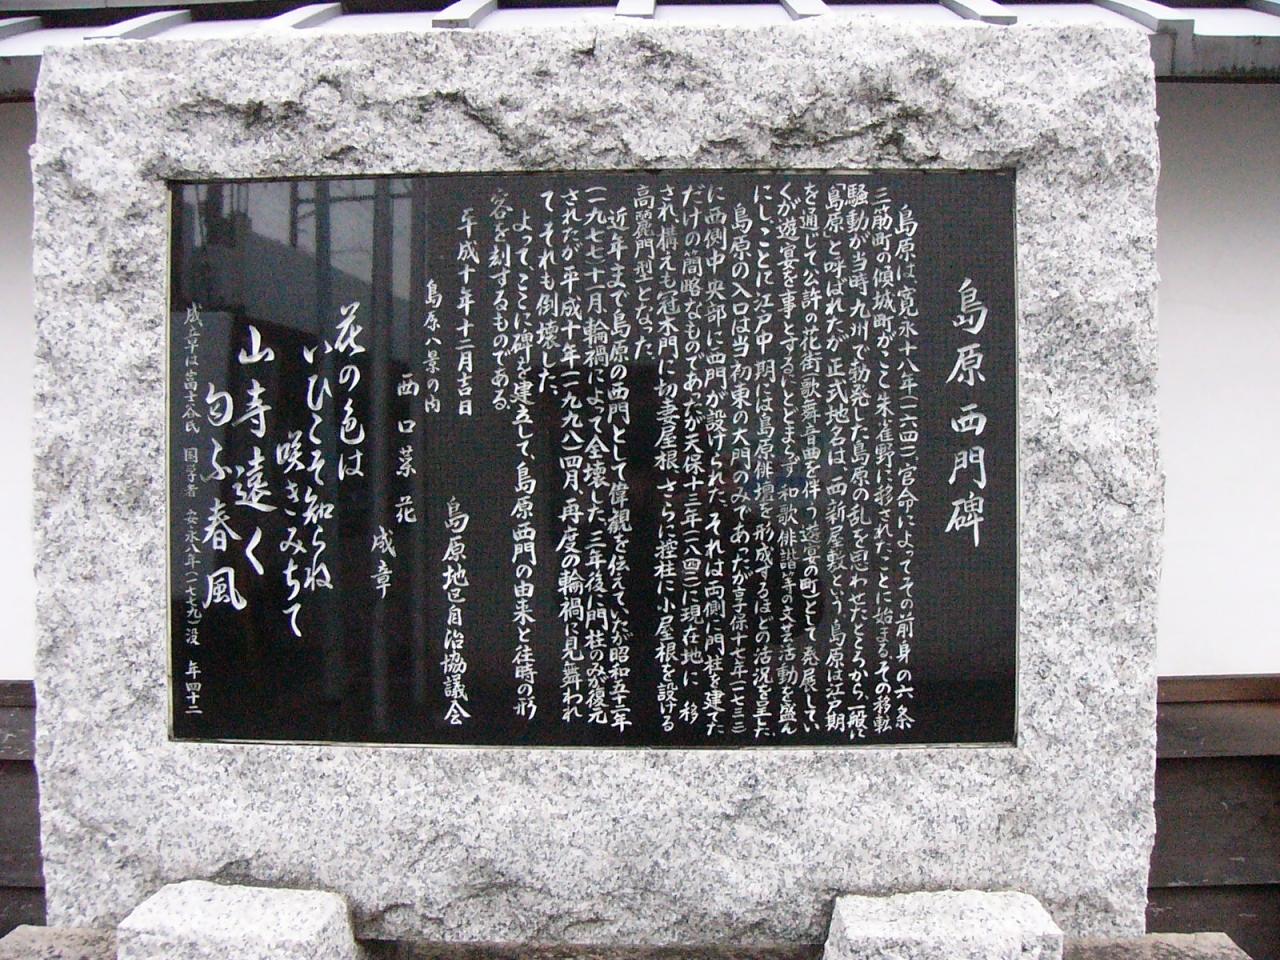 島原西門碑
島原は寛永十八年(一六四一)、官命によってその前身の六条
三筋町の傾城町がここ朱雀野に移されたことに始まる。その移転
騒動が当時、九州で勃発した島原の乱を思わせたところから、一般に
「島原」と呼ばれたが正式地名は、西新屋敷という。島原は江戸期
を通じて公許の花街(歌舞音曲を伴う遊宴の町)として発展してい
くが、遊宴を事とするにとどまらず、和歌俳諧等の文芸活動も盛ん
にし、ことに江戸中期には島原俳壇を形成するほどの活況を呈した。
島原の入口は当初東の大門のみであったが、享保十七年(一七三二)
に西側中央部に西門が設けられた。それは両側に門柱を建てた
だけの簡略なものであったが、天保十三年(一八四二)に現在地に移
され、構えも冠木門に切妻屋根、さらに控柱に小屋根を設ける
高麗門型となった。
近年まで島原の西門として偉観を伝えていたが、昭和五十二年
(一九七七)十一月、輪禍によって全壊した。三年後に門柱のみが復元
されたが、平成十年(一九九八)四月、再度の輪禍に見舞われ
てそれも倒壊した。
よってここに碑を建立して、島原西門の由来と往時の形
容を刻するものである。
平成十年十二月吉日
島原地区自治協議会
島原八景の内
西口菜花
成章
花の色は
いひこそ知らね
咲きみちて
山寺遠く
匂ふ春風
成章は富士谷氏 国学者 安永八年(一七七九)没 年四十二